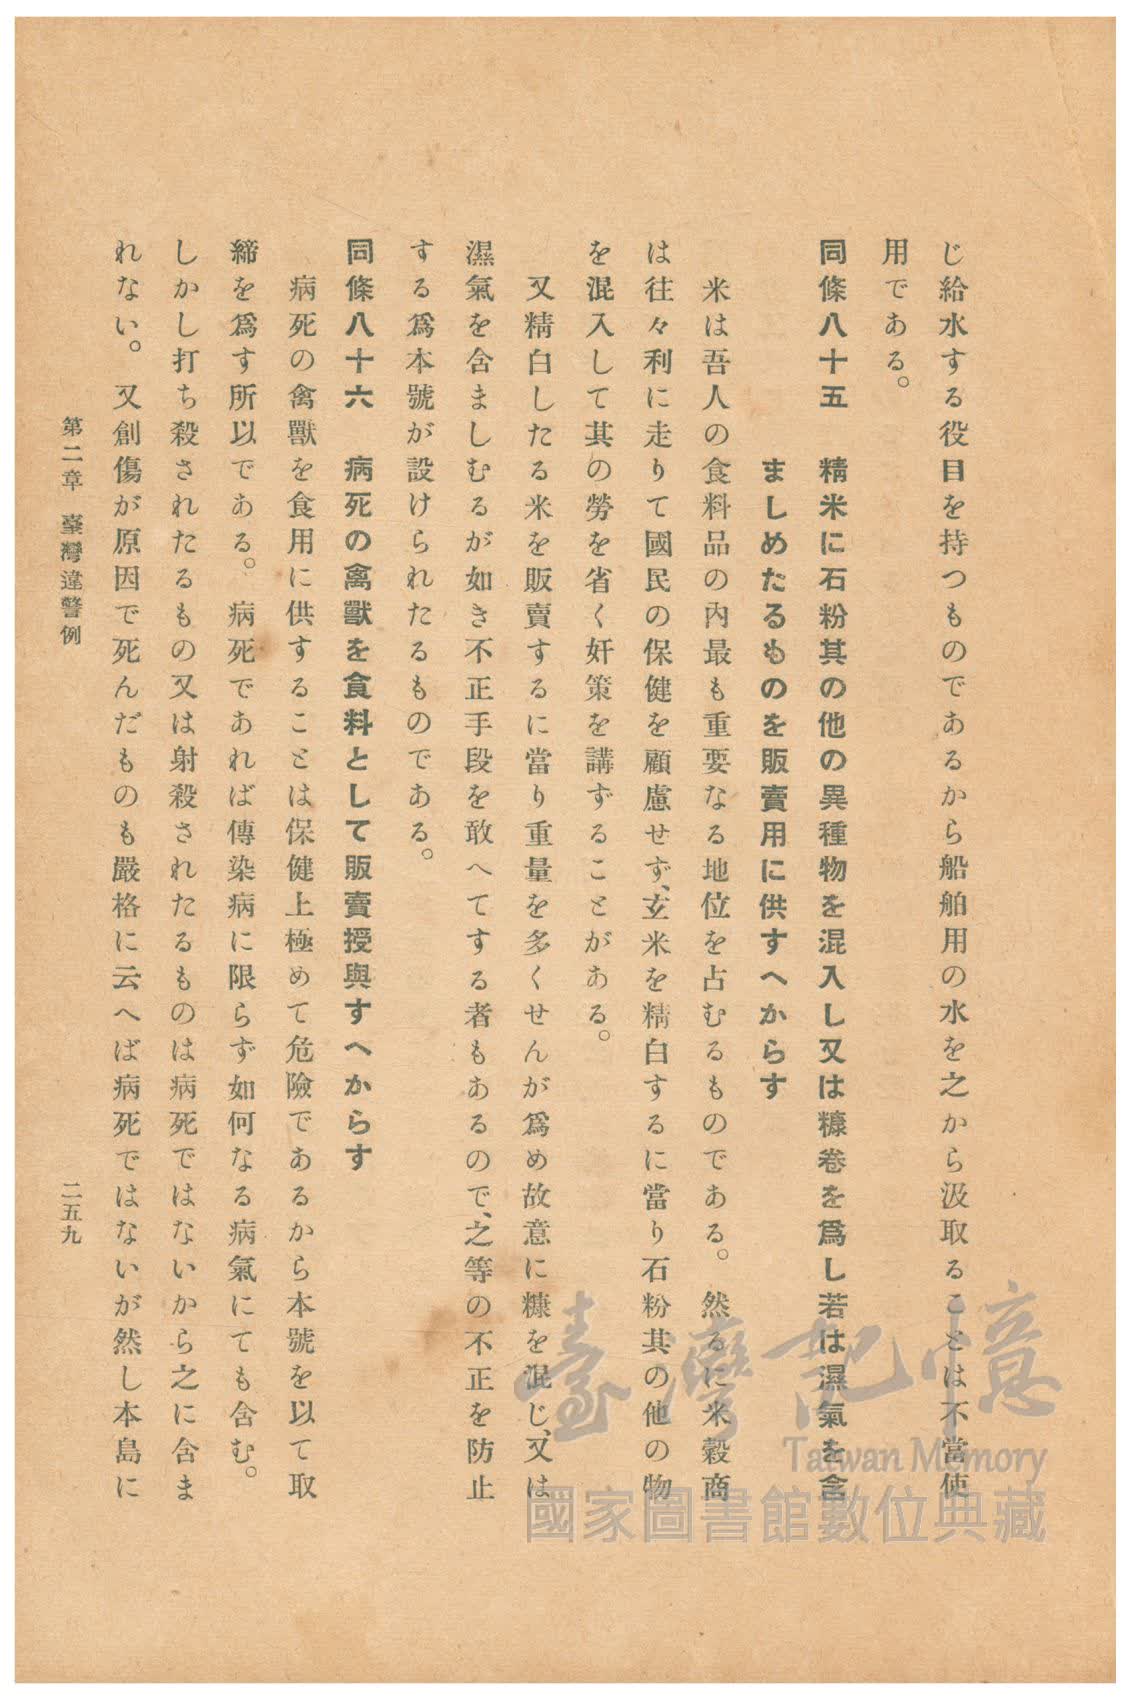 じ給水する役目を持つものであるから船舶用の水を之から汲取ることは不當使
用である。
同條八十五　精米に石粉其の他の異種物を混入し又は糠卷を爲し若は濕氣を含
ましめたるものを販賣用に供すへからす
米は吾人の食料品の內最も重要なる地位を占むるものである。然るに米穀商
は往々利に走りて國民の保健を顧慮せず、玄米を精白するに當り石粉其の他の物
を混入して其の勞を省く奸策を講ずることがある。
又精白したる米を販賣するに當り重量を多くせんが爲め故意に糠を混じ、又は
濕氣を含ましむるが如き不正手段を敢へてする者もあるので、之等の不正を防止
する爲本號が設けられたるものである。
同條八十六　病死の禽獸を食料として販賣授與すへからす
病死の禽獸を食用に供することは保健上極めて危險であるから本號を以て取
締を爲す所以である。病死であれば傳染病に限らず如何なる病氣にても含む。
しかし打ち殺されたるもの又は射殺されたるものは病死ではないから之に含ま
れない。又創傷が原因で死んだものも嚴格に云へば病死ではないが然し本島に
第二章　臺灣違警例　二五九
臺灣記憶
Taiwan Memory
國家圖書館數位典藏